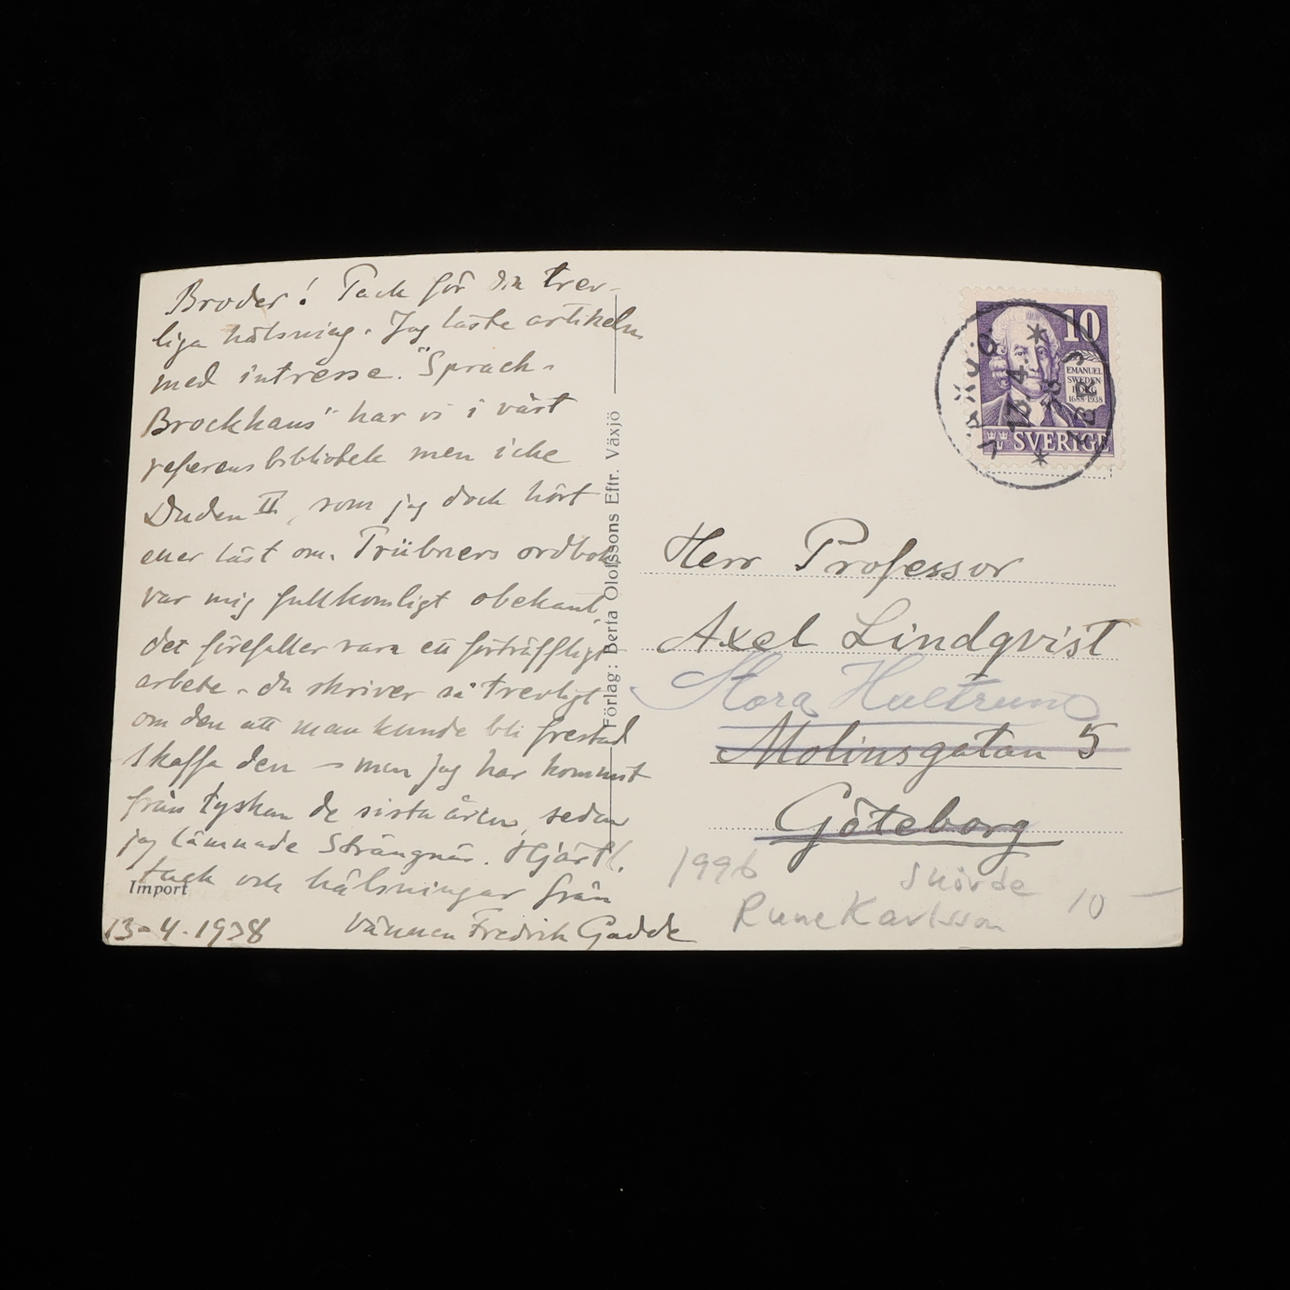 Broder! Tack för din trev-
liga hälsning. Jag läste artikeln
med intresse. "Sprach-
Brockhaus" har vi i vårt
referensbibliotek men icke
Duden II, som jag dock hört
eller läst om. Trübners ordbok
var mig fullkomligt obekant,
det förefaller vara ett förträffligt
arbete - du skriver så trevligt
om den att man kunde bli frestad
skaffa den - men jag har kommit
från tyskan de sista åren, sedan
jag lämnade Strängnäs. Hjärtl.
tack och hälsningar från
vännen Fredrik Gadde
13-4-1938
Import
Förlag: Berta Olofssons Eftr. Växjö
VÄXJÖ
13.4.
38
10
EMANUEL
SWEDEN-
BORG
1688-1938
SVERIGE
Herr Professor
Axel Lindqvist
Stora
Molinsgatan 5
Göteborg
1996 Skövde 10 -
Rune Karlsson